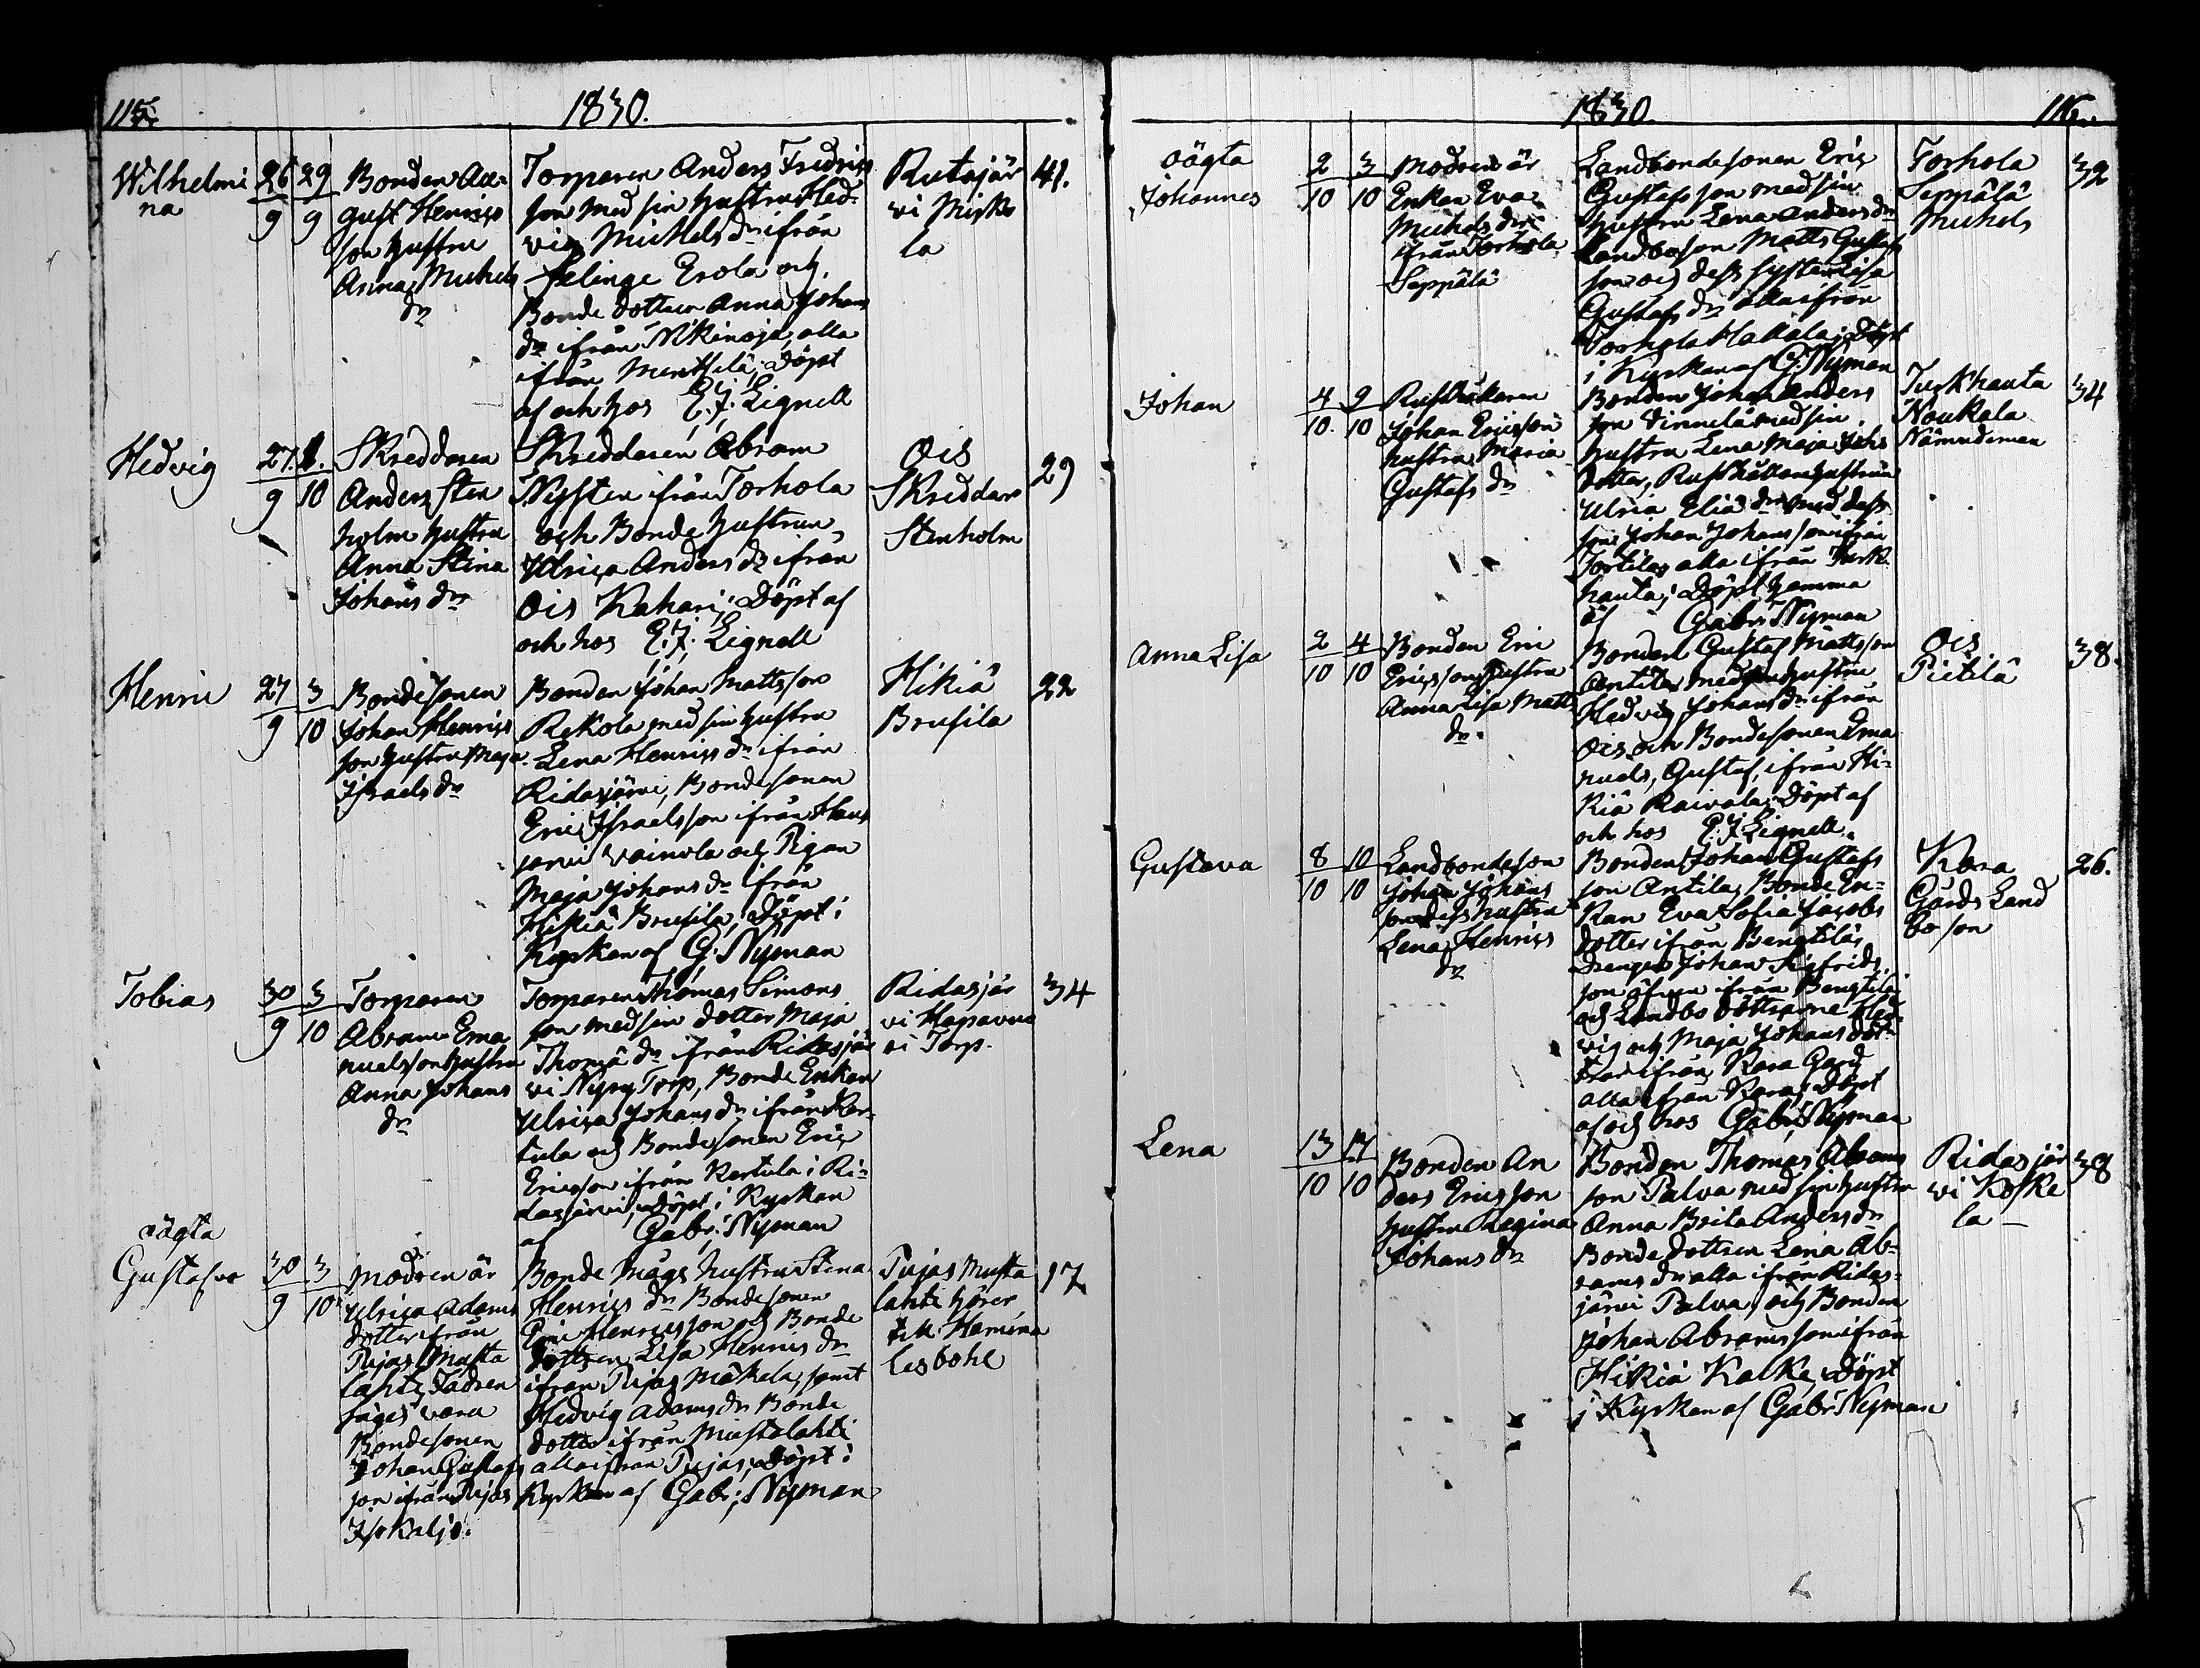 115.
1830.
Wilhelmi
na
26 29
9 9
Bonden Au-
gust Henrics
son hustru
Anna Michels
dr
Torparen Anders Fredrics
son med sin hustru Hed-
vig Michels dr ifrån
Erola och
Bonde dottren Anna Johans
dr ifrån Nikinoja, alla
ifrån Mentsilä; Döpt
af och hos E. J. Lignell
Rutajär
vi
la
41.
Hedvig
27. 1.
9 10
Skreddaren
Anders Sten
holm hustru
Anna Stina
Johans dr
Skreddaren Abram
Nysten ifrån Torhola
och Bonde hustrun
Ulrica Anders dr ifrån
Ois Kahari; Döpt af
och hos E. J. Lignell
Ois
Skreddar
Stenholm
29
Henric
27 3
9 10
Bondesonen
Johan Henrics
son hustru Maja
Israels dr
Bonden Johan Mattsson
Rekola med sin hustru
Lena Henrics dr ifrån
Ridasjärvi, Bondesonen
Eric Israelsson ifrån Haus
jarvi Vainola och Pigan
Maja Johans dr ifrån
Hikiä Brusila, Döpt i
Kyrkan af G. Nyman
Hikiä
Brusila
22
Tobias
30 3
9 10
Torparen
Abram Ema
nuelsson hustru
Anna Johans
dr
Torparen Thomas Simons
son med sin dotter Maja
Thomä dr ifrån Ridasjär
vi Nyry Torp, Bonde Enkan
Ulrica Johans dr ifrån Ker-
tula och Bondesonen Eric
Ericsson ifrån Kertula i Ri-
dasjärvi, Döpt i Kyrkan
af Gabr. Nyman
Ridasjär
vi Hapavuo
ri Torp.
34
oägta
Gustafva
30 3
9 10
Modren är
Ulrica Adams
dotter ifrån
Pujas Musta
lahti, Fadren
säges vara
Bondesonen
Johan Gustafs
son ifrån Pujas
Bonde mågs hustru Stina
Henrics dr Bondesonen
Eric Henricsson och Bonde
dottren Lisa Henrics dr
ifrån Pujas Mäkela, samt
Hedvig Adams dr Bonde
dotter ifrån Mustalahti
alla ifrån Pujas, Döpt i
Kyrkan af Gabr. Nyman
Pujas Musta
lahti hörer
till
lesbohl
17
1830.
116.
oägta
Johannes
2 3
10 10
Modren är
Enkan Eva
Michels dr
ifrån Torhola
Seppälä
Landbondesonen Eric
Gustafsson med sin
hustru Lena Anders dr
Landboson Matts Gustafs
son och dess syster Lisa
Gustafs dr alla ifrån
Torhola Hallola, Döpt
i Kyrkan af G. Nyman
Torhola
Seppälä
Michels
32
Johan
4 9
10 10
Rusthållaren
Johan Ericsson
hustru Maria
Gustafs dr
Bonden Johan Anders
son med sin
hustru Lena Maja Johs
dotter, Rusthållarehustrun
Ulrica Eliä dr med dess
son Johan Johansson ifrån
Tortila, alla ifrån Turk-
hauta; Döpt hemma
af Gabr. Nyman
Turkhauta
Noukala
Nämndeman
34
Anna Lisa
2 4
10 10
Bonden Eric
Ericsson hustru
Anna Lisa Matts
dr
Bonden Gustaf Mattsson
Antila med sin hustru
Hedvig Johans dr ifrån
Ois och Bondesonen Ema-
nuels, Gustaf, ifrån Hi-
kiä Raivola; Döpt af
och hos E. J. Lignell.
Ois
Pietilä
38.
Gustava
8 10
10 10
Landbondeson
Johan Johans
son dess hustru
Lena Henrics
dr
Bonden Johan Gustafs
son Antila, Bonde En-
kan Eva Sofia Jacobs
dotter ifrån Bengtilä,
Drengen Johan Sigfrids
son äfven ifrån Bengtilä
och Landbo döttrarne Hed-
vig och Maja Johans döt-
trar ifrån Kara Gård
alla ifrån Kara; Döpt
af och hos Gabr. Nyman
Kara
Gårds Land
bo son
26.
Lena
13 17
10 10
Bonden An
ders Ericsson
hustru Regina
Johans dr
Bonden Thomas Abrams
son Palva med sin hustru
Anna Brita Anders dr
Bonde dottren Lena Ab-
rams dr alla ifrån Ridas-
järvi Palva, och Bonden
Johan Abramsson ifrån
Hikiä Kalke, Döpt
i Kyrkan af Gabr. Nyman
Ridasjär
vi Koske
la
38